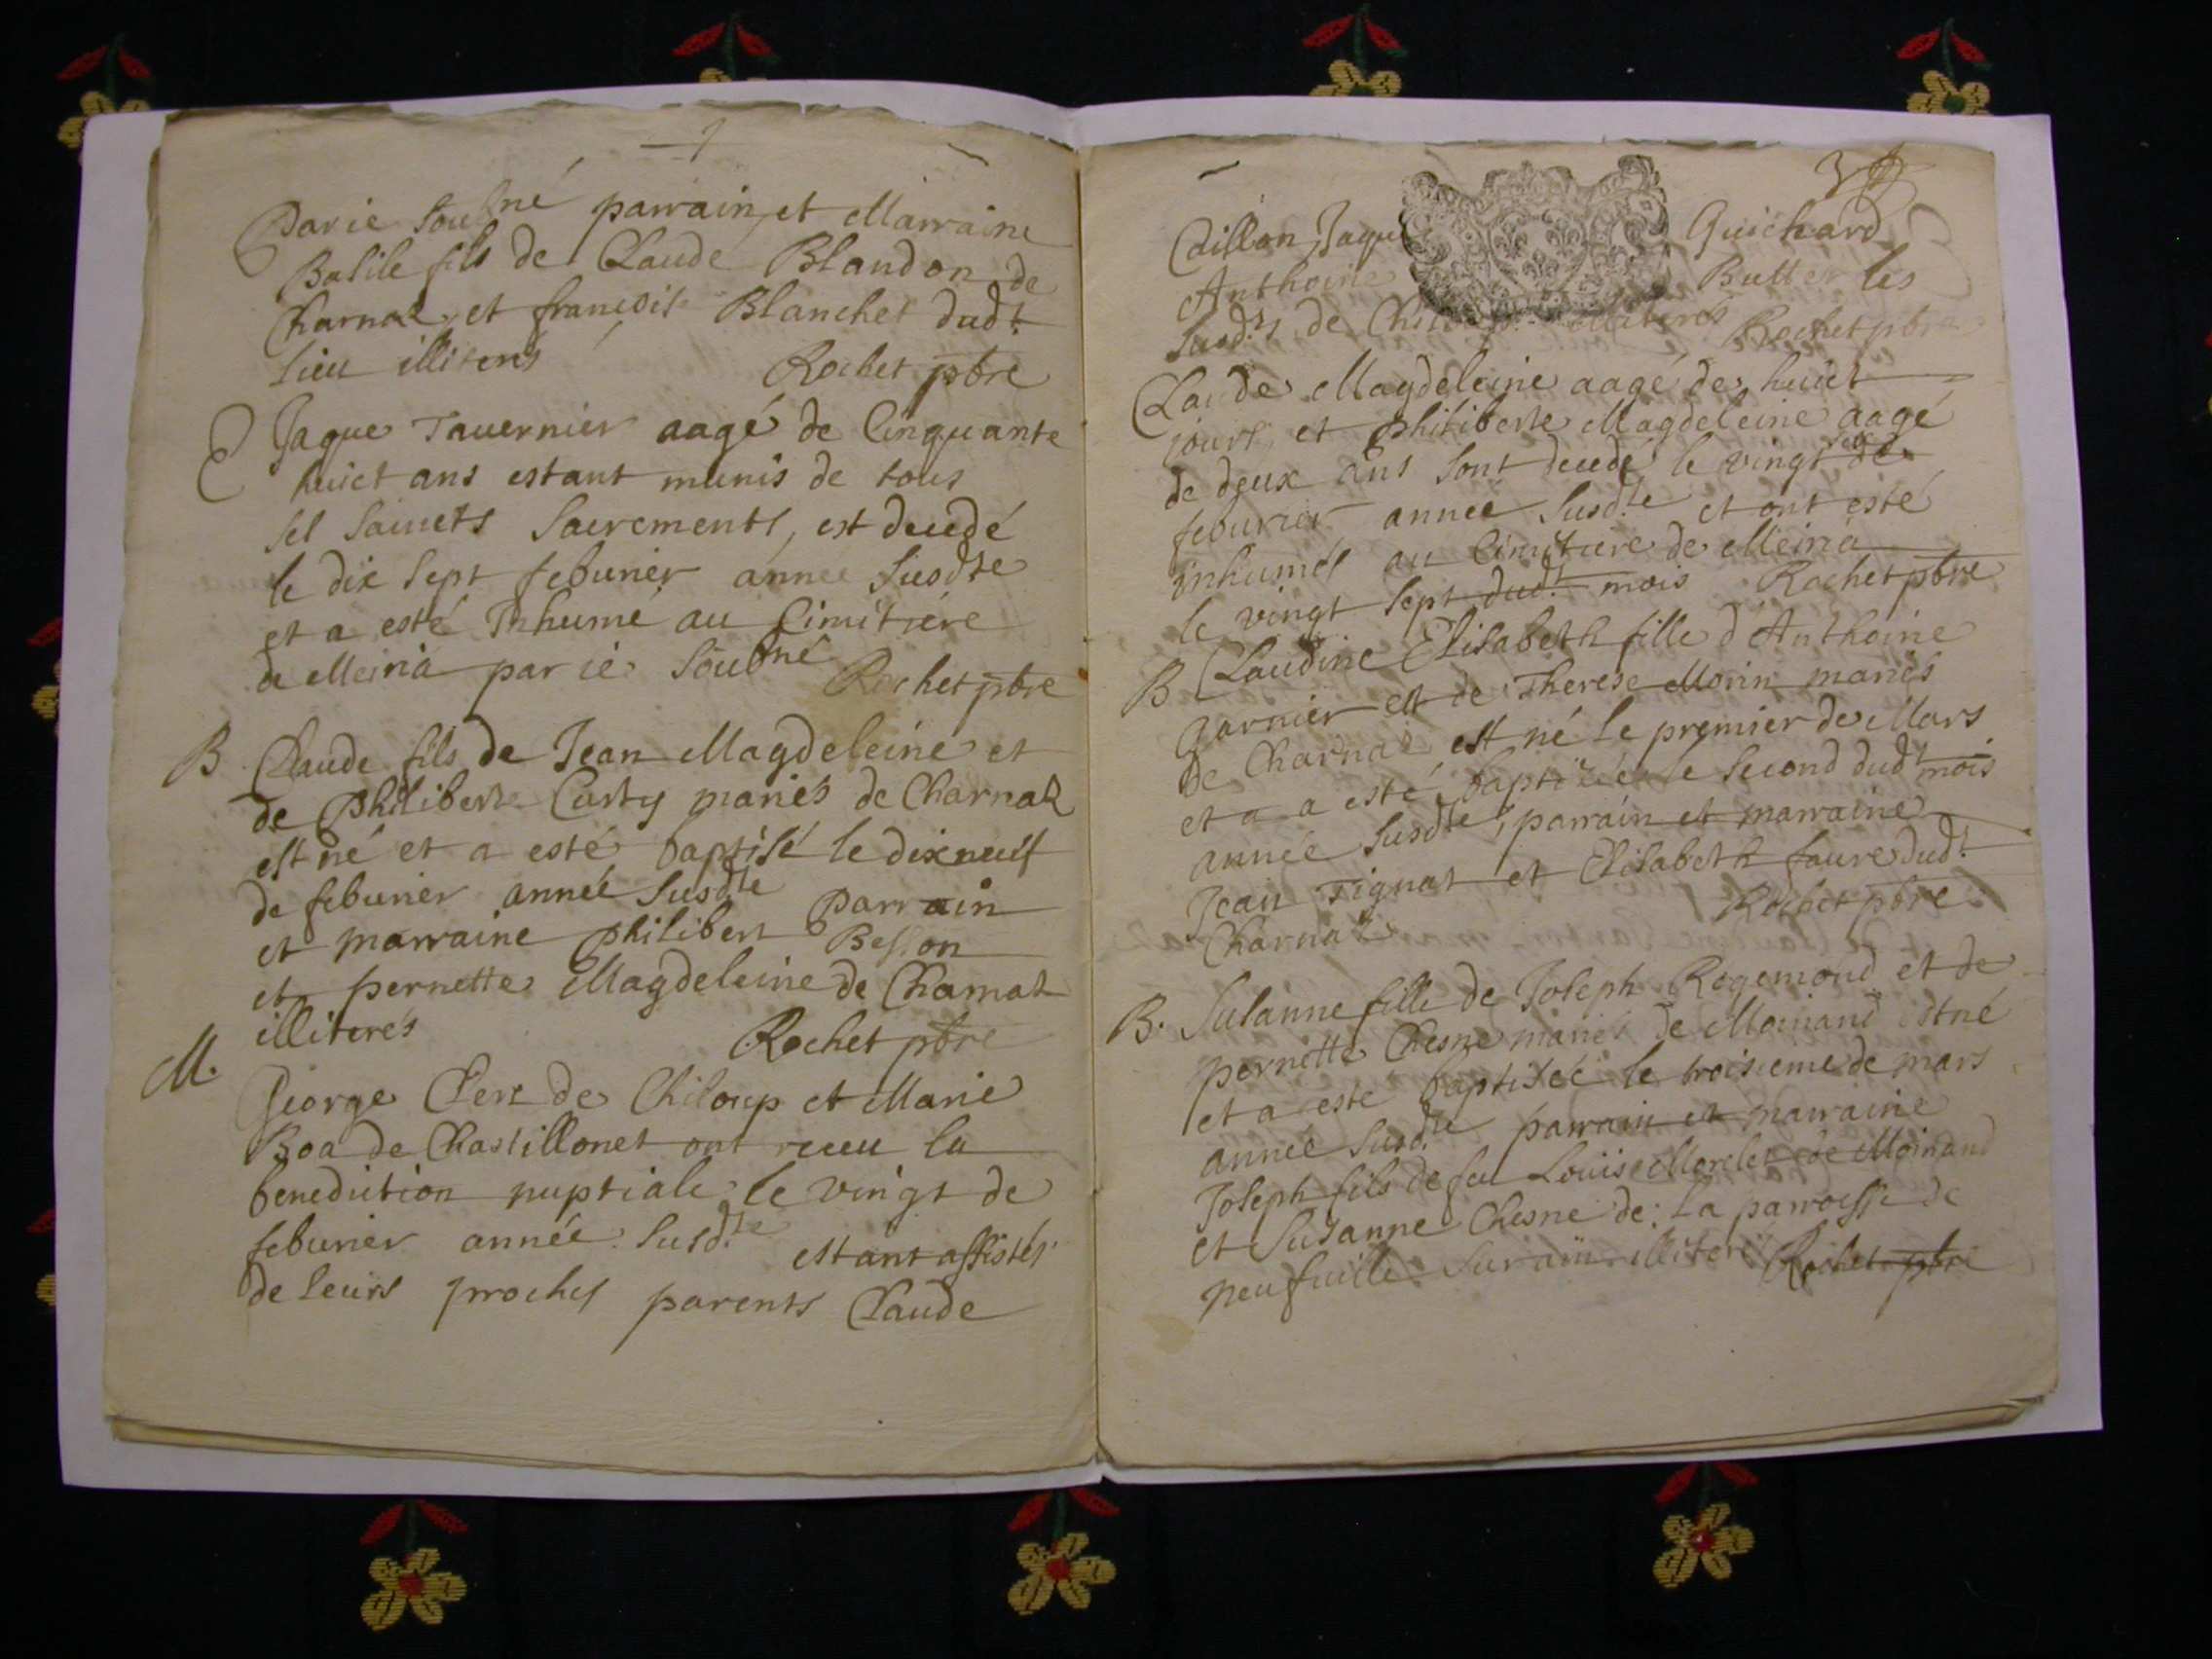 Parie Soubné parrain et Marraine
Basile fils de Claude Blandon de
Charnaz et francois Blanchet dudt.
lieu illiterés Rochet pbre
Jaque Tavernier aagé de Cinquante
huict ans estant munis de tous
ses saincts Sacrements, est decedé
le dix sept feburier année susdte
et a esté Inhumé au Cimitiére
de Meiria par ie Soubné
Rochet pbre
B Claude fils de Jean Magdeleine et
de Philiberte Curty mariés de Charnaz
est né et a esté baptisé le dixneuf
de feburier année susdte parrain
et marraine philibert Besson
et pernette Magdeleine de Charnaz
illiterés Rochet pbre
M. George Clerc de Chiloup et Marie
Boa de Chastillonet ont receu la
benediction nuptiale le vingt de
feburier année susdte estant assistés
de leurs proches parents Claude
3
Caillon Jaque Guichard
Anthoine Buttet les
susdts de rés Rochet pbre
Claude Magdeleine aagé de huict
jours, et philiberte Magdeleine aagé
de deux ans sont decedé le vingt de
feburier année susdte et ont esté
inhumés au Cimitiere de Meiria
le vingt sept dudt. mois Rochet pbre
B Claudine Elisabeth fille d'Anthoine
garnier et de Therese Morin mariés
de Charnaz est né le premier de Mars
et a a esté baptizée le second dudt mois
année susdte, parrain et marraine
Jean Tignat et Elisabeth faure dudt.
Charnaz Rochet pbre
B. Susanne fille de Joseph Regemond et de
pernette Chesne mariés de Moinand est né
et a este baptisée le troisieme de mars
année susdte parrain et marraine
Joseph fils de feu Louis Morelet de Moinand
et Susanne Chesne de la parroisse de
neufuille sur ain illiterés Rochet pbre